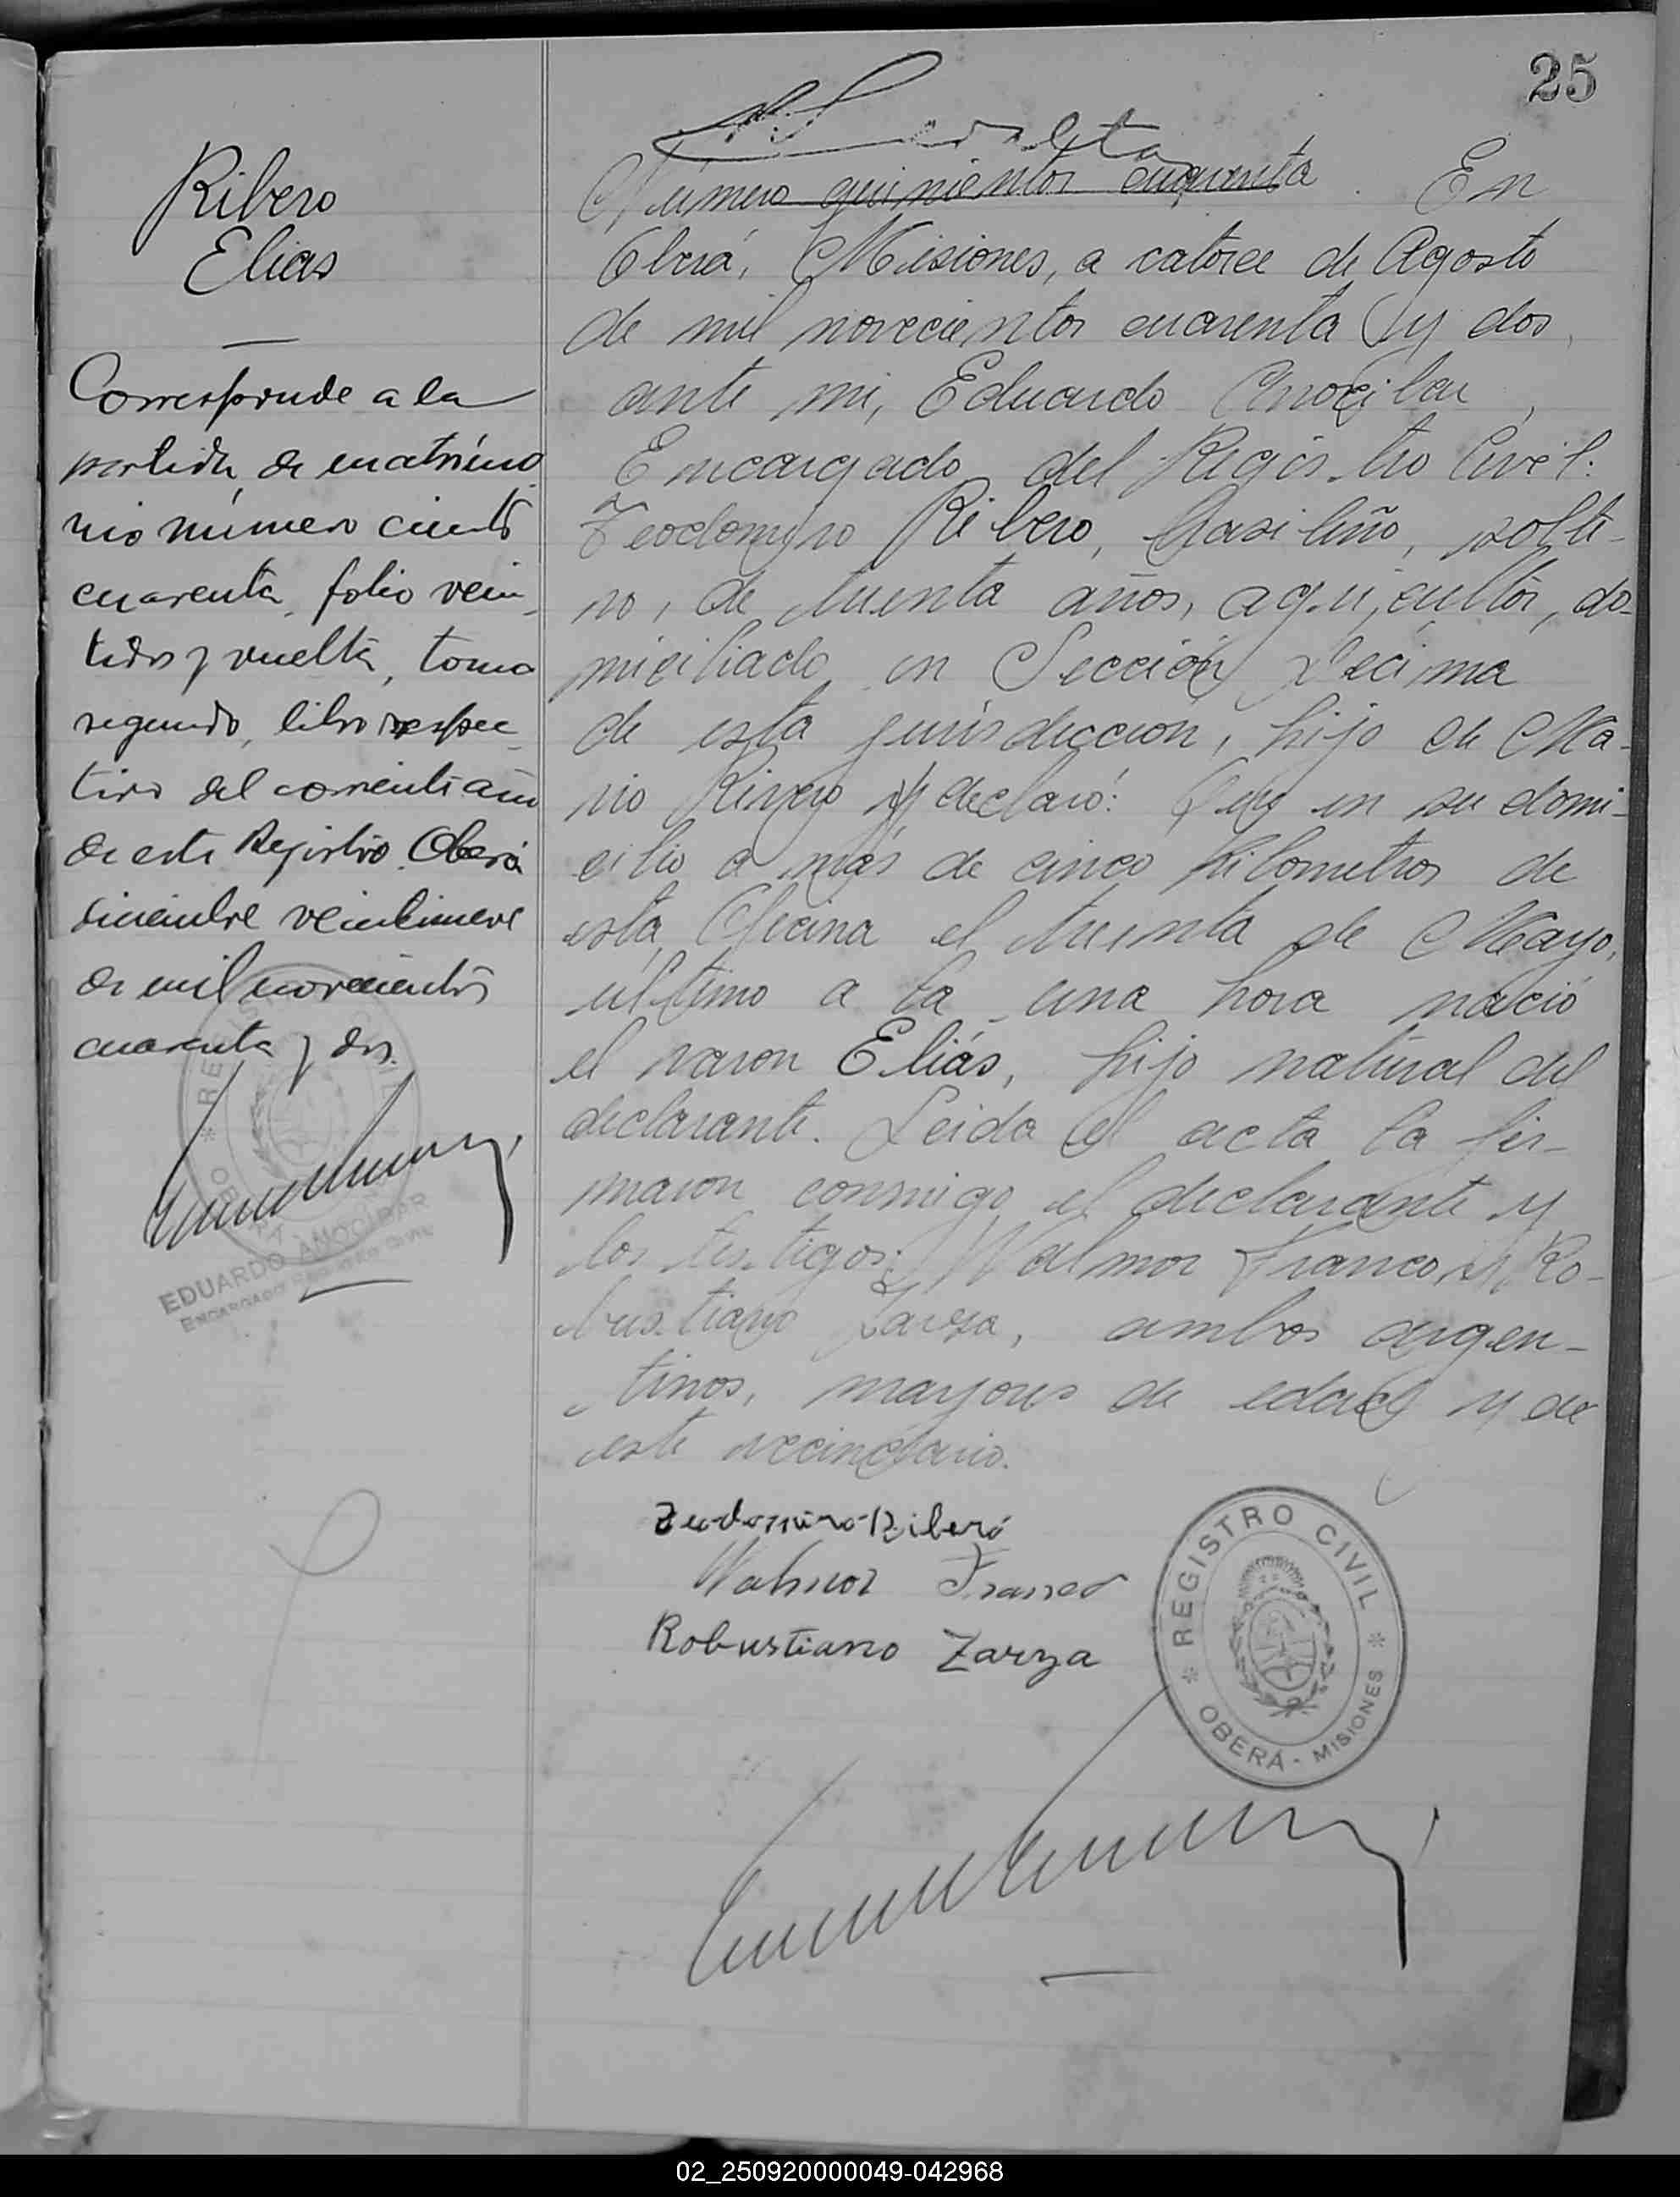 25
Ribero
Elias
Corresponde a la
partida de matrimo
nio número ciento
cuarenta, folio vein
tidos y vuelta, tomo
segundo, libro respec
tivo del corriente año
de este Registro. Oberá
diciembre veintinueve
de mil novecientos
cuarenta y dos.
REGISTRO CIVIL
OBERÁ
EDUARDO AMOCIBAR
ENCARGADO REGISTRO CIVIL
Número quinientos cuarenta. En
Oberá, Misiones, a catorce de Agosto
de mil novecientos cuarenta y dos,
ante mi, Eduardo Amocibar,
Encargado del Registro Civil:
Teodomiro Ribero, brasileño, solte-
ro, de treinta años, agricultor, do-
miciliado en Sección Décima
de esta jurisdiccion, hijo de Ma-
rio Rivero y declaró: Que en su domi-
cilio a más de cinco kilometros de
esta Oficina el treinta de Mayo,
último a la una hora nació
el varon Eliás, hijo natural del
declarante. Leida el acta la fir-
maron conmigo el declarante y
los testigos: Walmor Franco y Ro-
bustiano Zarza, ambos argen-
tinos, mayores de edad y de
este vecindario.
Teodomiro Riberó
Walmor Franco
Robustiano Zarza
REGISTRO CIVIL
OBERÁ - MISIONES
02_250920000049-042968